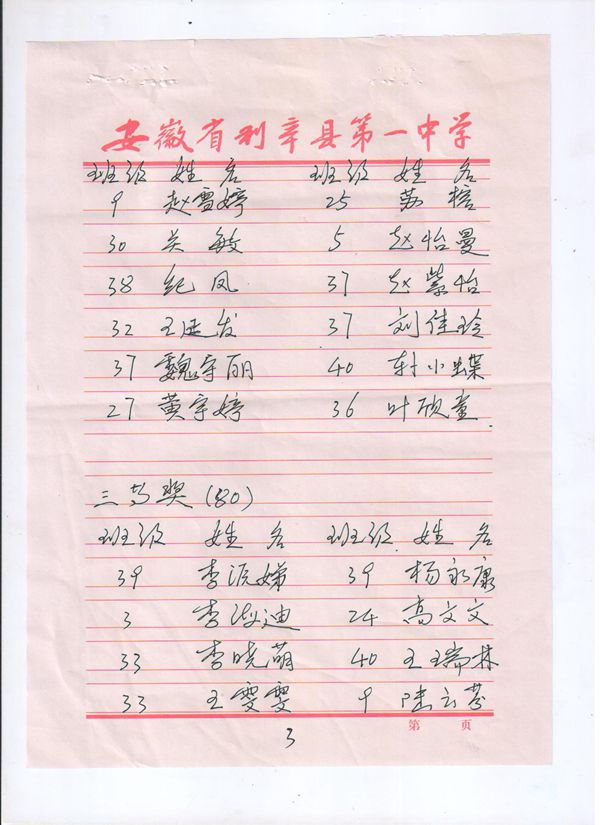 安徽省利辛县第一中学
班级 姓名 班级 姓名
9 赵雪婷 25 苏榕
30 关敏 5 赵怡曼
38 纪凤 37 赵紫怡
32 王延发 37 刘佳玲
37 魏宇丽 40 小蝶
27 黄宇婷 36 叶欣童
三等奖(80)
班级 姓名 班级 姓名
39 李娣 39 杨永康
3 李迪 24 高文文
33 李晓萌 40 王瑞林
33 王雯雯 9 陆云芬
第 页
3